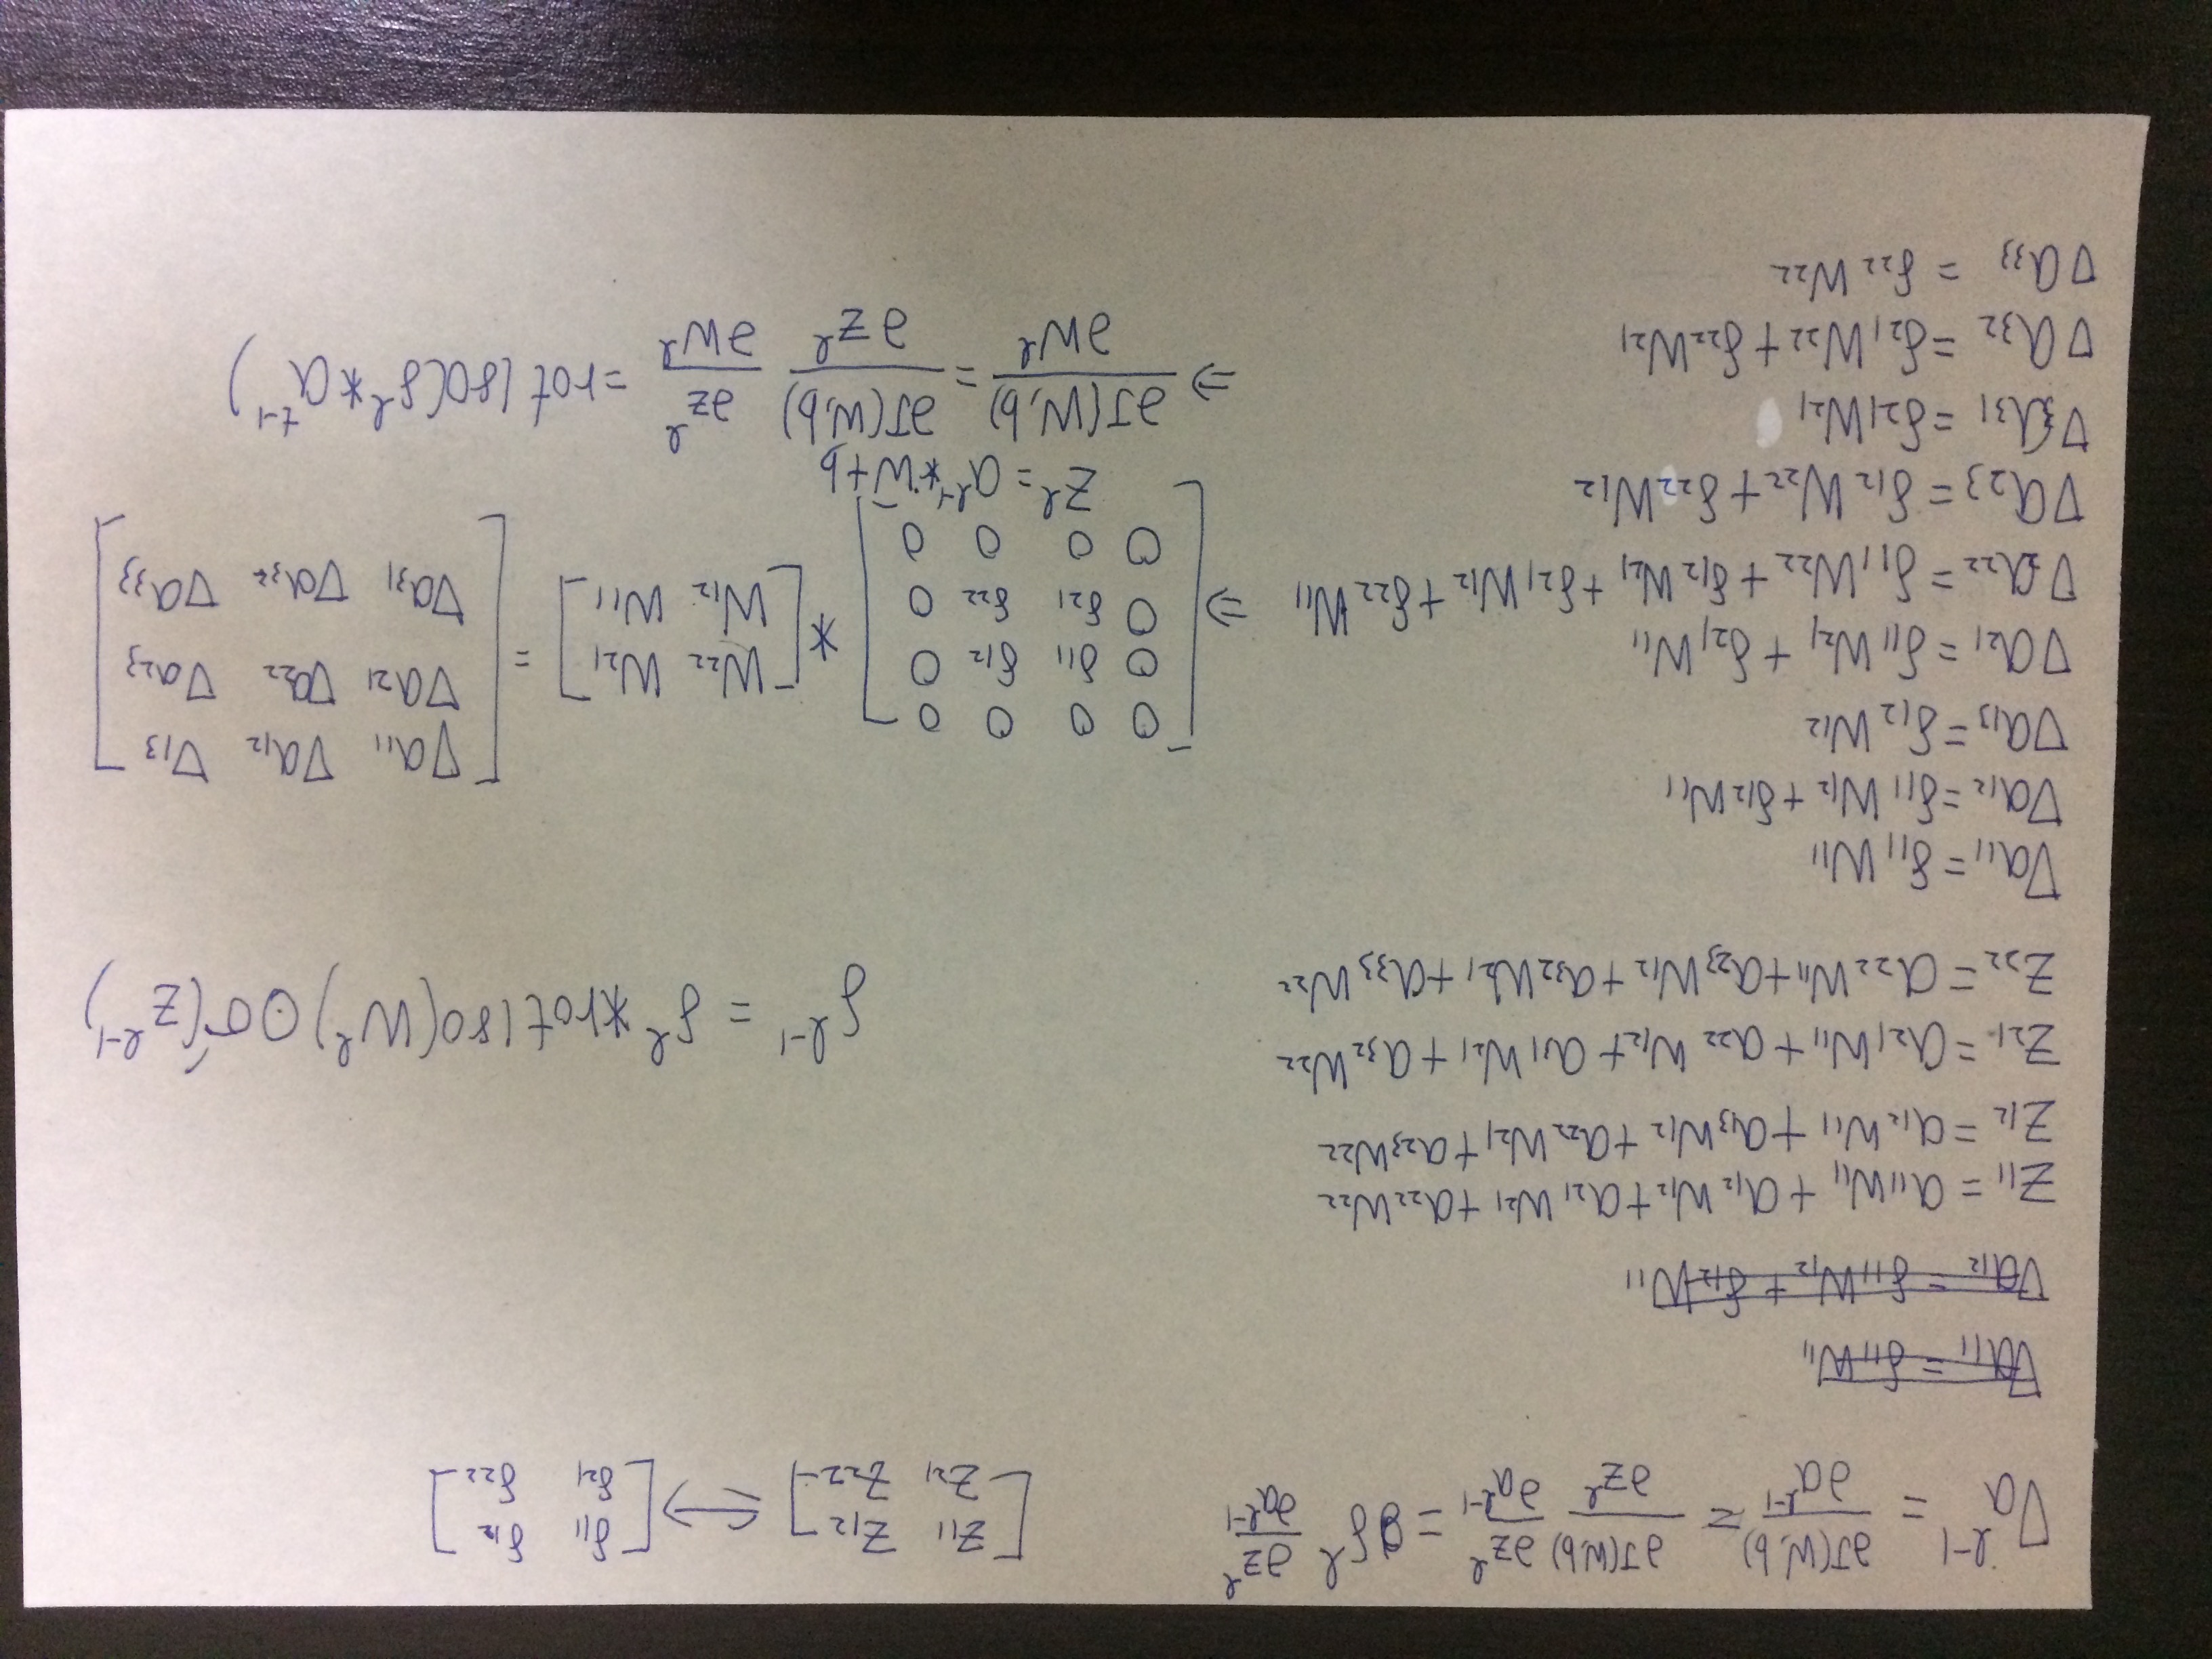 ∇a^{l-1} = ∂J(W,b)/∂a^{l-1} = ∂J(W,b)/∂z^l ∂z^l/∂a^{l-1} = δ^l ∂z^l/∂a^{l-1}
[z₁₁ z₁₂; z₂₁ z₂₂] ⟺ [δ₁₁ δ₁₂; δ₂₁ δ₂₂]
∇a₁₁ = δ₁₁W₁₁
∇a₁₂ = δ₁₁W₁₂ + δ₁₂W₁₁
z₁₁ = a₁₁W₁₁ + a₁₂W₁₂ + a₂₁W₂₁ + a₂₂W₂₂
z₁₂ = a₁₂W₁₁ + a₁₃W₁₂ + a₂₂W₂₁ + a₂₃W₂₂
z₂₁ = a₂₁W₁₁ + a₂₂W₁₂ + a₃₁W₂₁ + a₃₂W₂₂
z₂₂ = a₂₂W₁₁ + a₂₃W₁₂ + a₃₂W₂₁ + a₃₃W₂₂
δ^{l-1} = δ^l * rot180(W^l) ⊙ σ′(z^{l-1})
∇a₁₁ = δ₁₁W₁₁
∇a₁₂ = δ₁₁W₁₂ + δ₁₂W₁₁
∇a₁₃ = δ₁₂W₁₂
∇a₂₁ = δ₁₁W₂₁ + δ₂₁W₁₁
∇a₂₂ = δ₁₁W₂₂ + δ₁₂W₂₁ + δ₂₁W₁₂ + δ₂₂W₁₁
∇a₂₃ = δ₁₂W₂₂ + δ₂₂W₁₂
∇a₃₁ = δ₂₁W₂₁
∇a₃₂ = δ₂₁W₂₂ + δ₂₂W₂₁
∇a₃₃ = δ₂₂W₂₂
⇒ [0 0 0 0; 0 δ₁₁ δ₁₂ 0; 0 δ₂₁ δ₂₂ 0; 0 0 0 0] * [W₂₂ W₂₁; W₁₂ W₁₁] = [∇a₁₁ ∇a₁₂ ∇₁₃; ∇a₂₁ ∇a₂₂ ∇a₂₃; ∇a₃₁ ∇a₃₂ ∇a₃₃]
z^l = a^{l-1} * W + b
⇒ ∂J(W,b)/∂W^l = ∂J(W,b)/∂z^l ∂z^l/∂W^l = rot180(δ^l * a^{t-1})